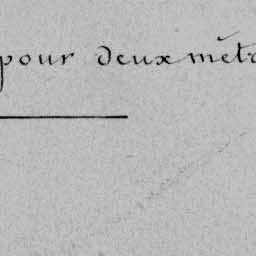 pour deux mètr